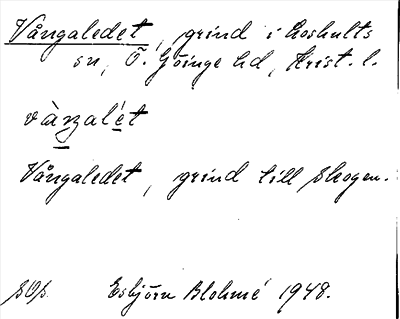 Vångaledet, grind i Loshults
sn, Ö. Göinge hd, Krist. l.
vàŋalét
Vångaledet, grind till skogen.
Esbjörn Blohmé 1948.